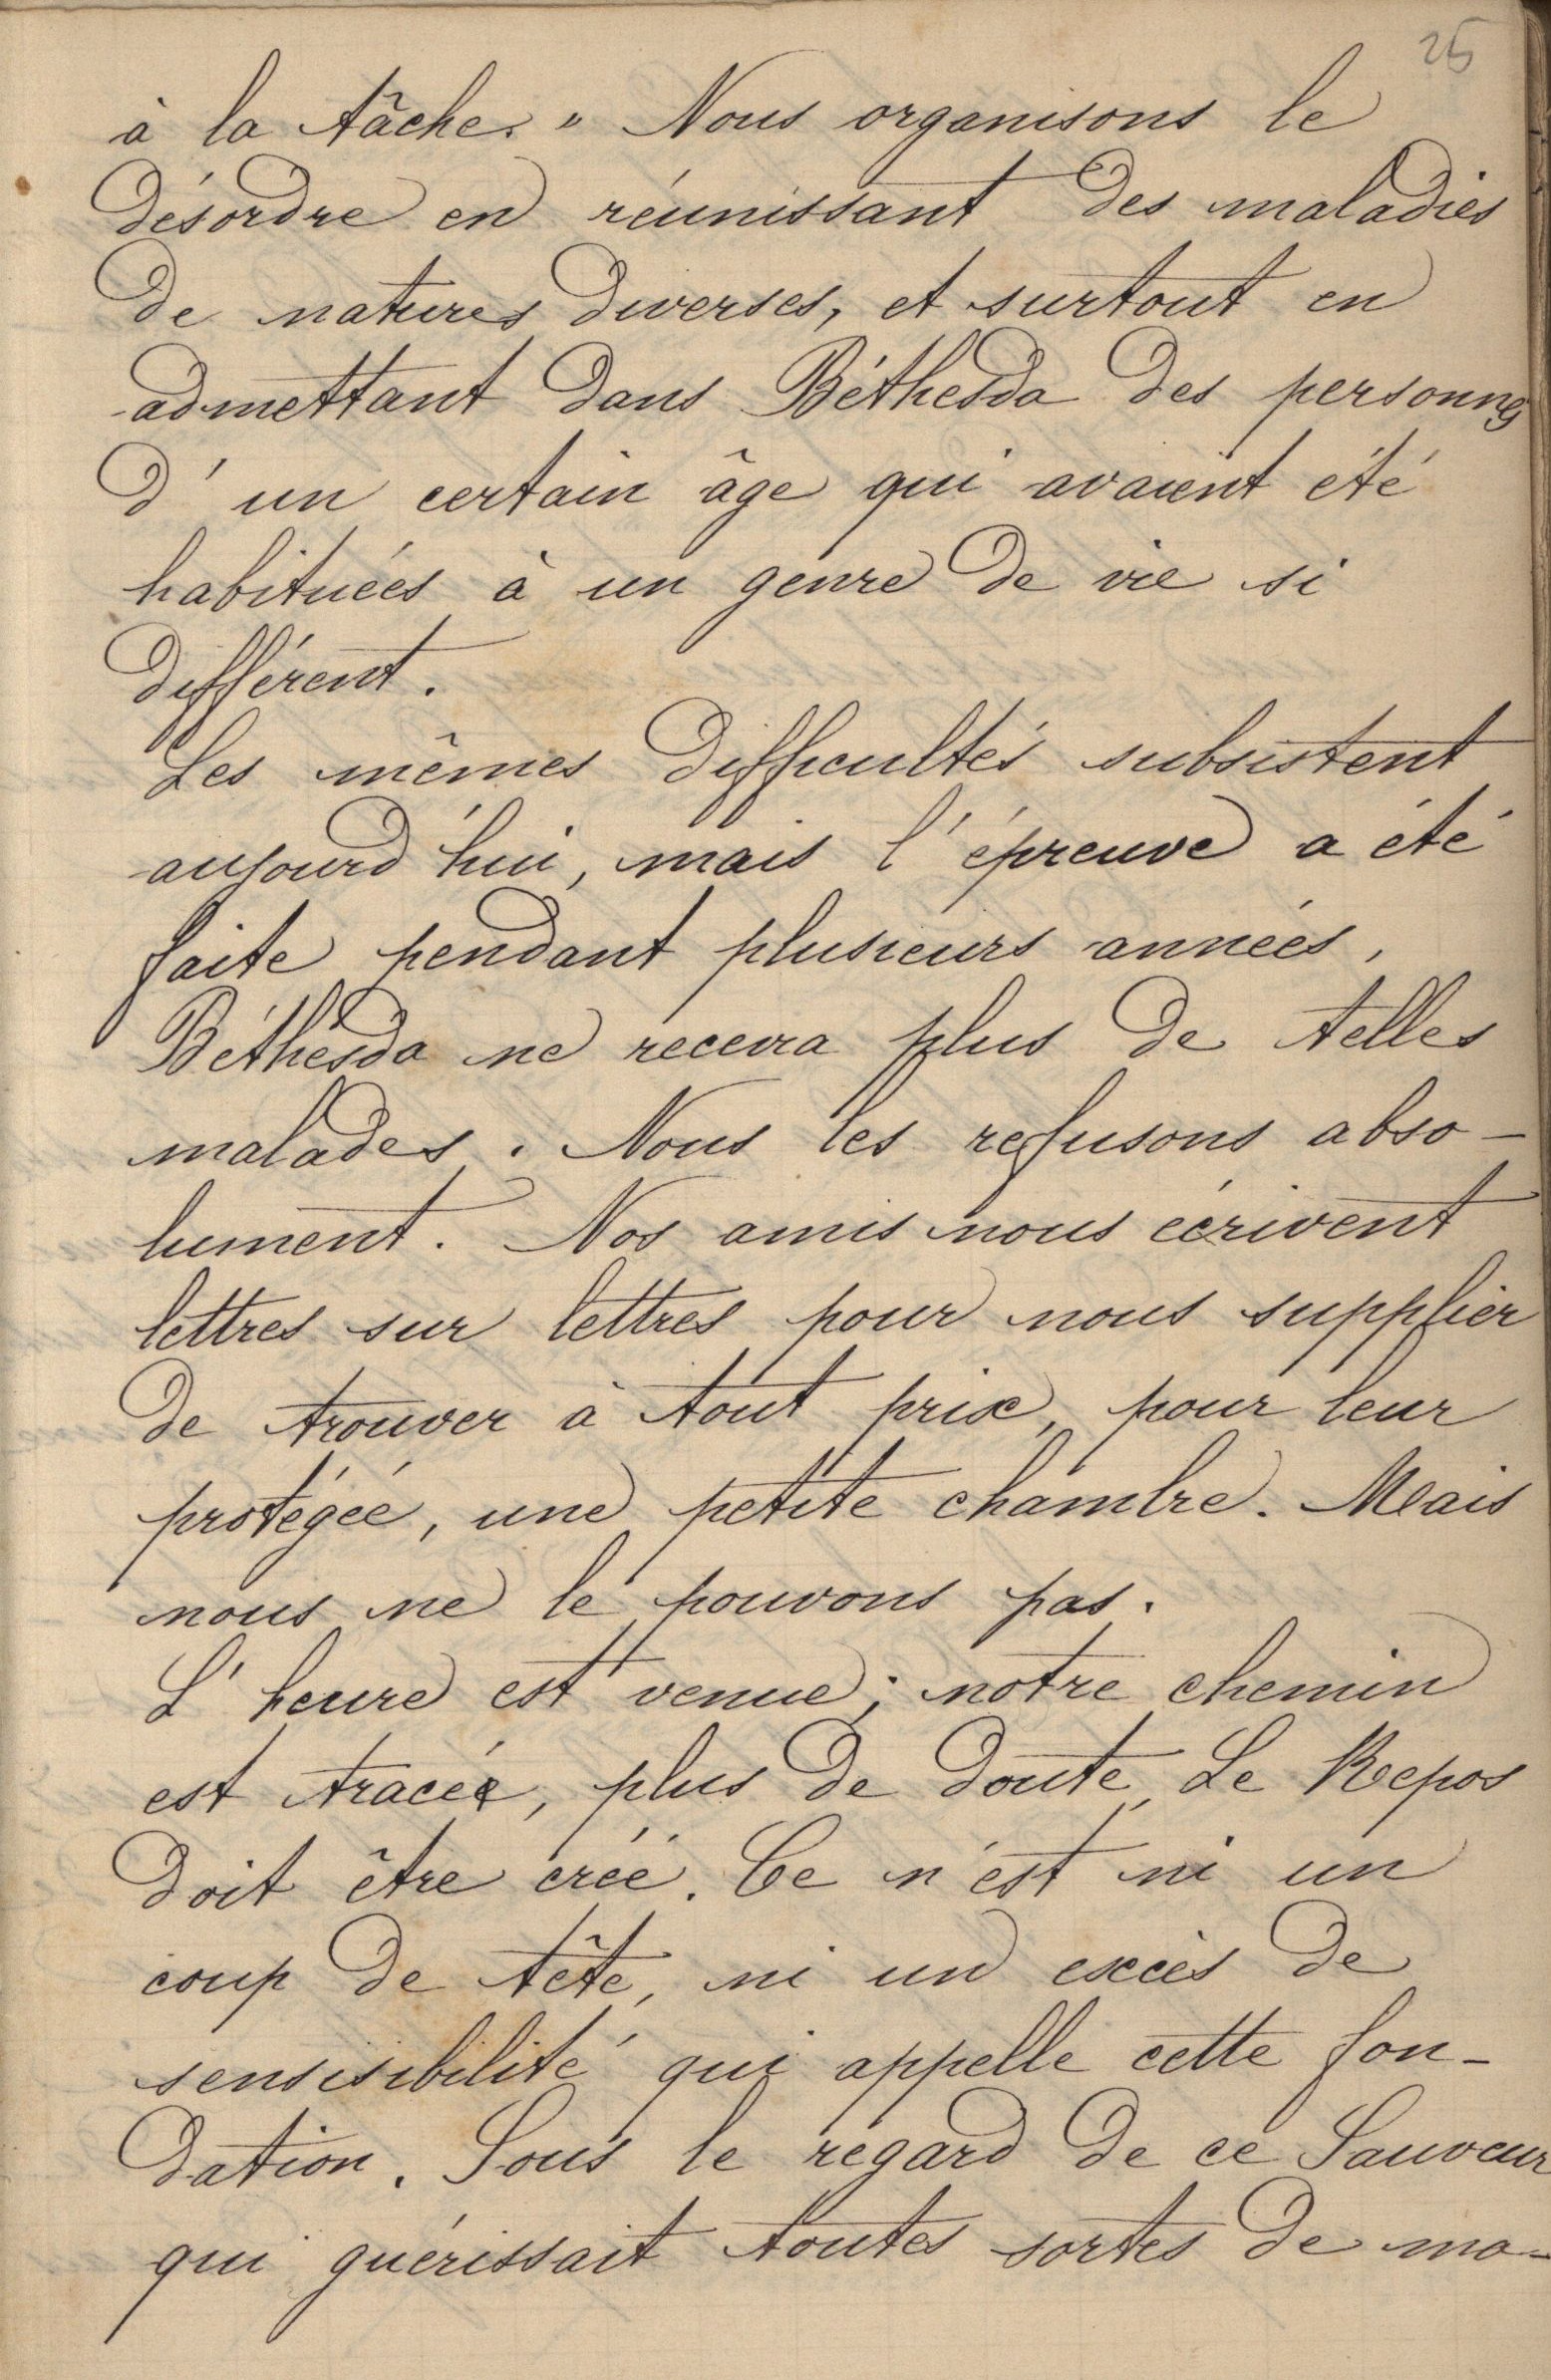 25
à la tâche. " Nous organisons le
désordre en réunissant des maladies
de natures diverses, et surtout en
admettant dans Béthesda des personnes
d'un certain âge qui avaient été
habituées à un genre de vie si
différent.
Les mêmes difficultés subsistent
aujourd'hui, mais l'épreuve a été
faite pendant plusieurs années,
Béthesda ne recevra plus de telles
malades. Nous les refusons abso-
lument. Nos amis nous écrivent
lettres sur lettres pour nous supplier
de trouver à tout prix, pour leur
protégée, une petite chambre. Mais
nous ne le pouvons pas.
L'heure est venue; notre chemin
est tracée, plus de doute, Le Repos
doit être créé. Ce n'est ni un
coup de tête, ni un excès de
sensisibilité qui appelle cette fon-
dation. Sous le regard de ce Sauveur
qui guérissait toutes sortes de ma-